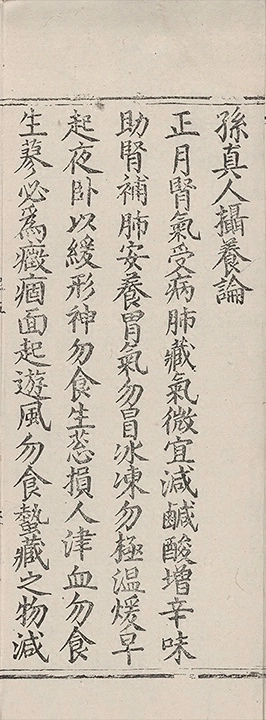 孫真人攝養論
正月腎氣受病肺藏氣微宜減鹹酸增辛味
助腎補肺安養胃氣勿冒冰凍勿極温煖早
起夜卧以緩形神勿食生葱損人津血勿食
生蓼必爲癥痼面起遊風勿食蟄藏之物減